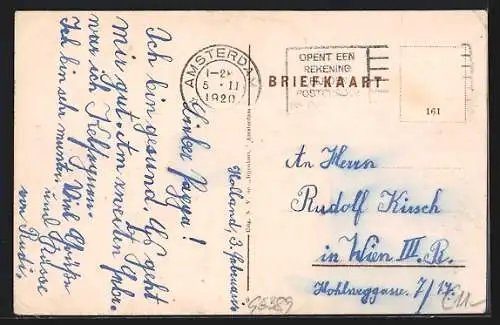 Holland, 3. Februar
Lieber Pappa!
Ich bin gesund, Es geht
mir gut. Am zweiten Febr.
war ich
Ich bin sehr munter. Viel Grüße
und Küsse
von Rudi.
AMSTERDAM
1-2
5 · II
1920
OPENT EEN
REKENING
BRIEFKAART
161
An Herrn
Rudolf Kirsch
in Wien III. R.
Hohlweggasse. 7/17.
95489
€11-